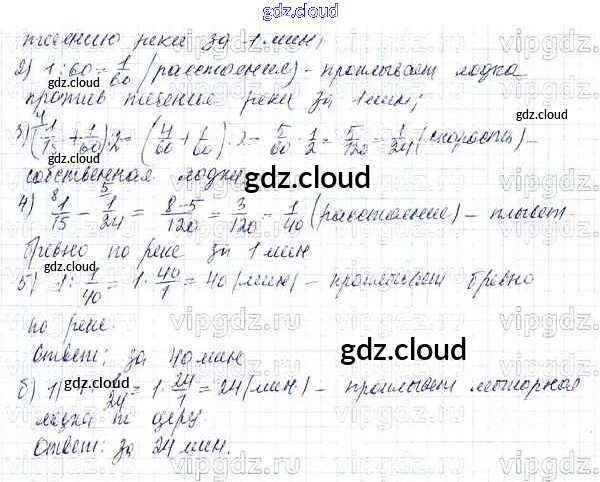 gdz.cloud
течению реки за 1 мин;
2) 1 : 60 = 1/60 (расстояния) – проплывает лодка
против течения реки за 1 мин;
3) (1/15 + 1/60) : 2 = (4/60 + 1/60) : 2 = 5/60 · 1/2 = 5/120 = 1/24 (скорость) –
собственная лодки
gdz.cloud
4) 1/15 – 1/24 = 8–5/120 = 3/120 = 1/40 (расстояние) – плывет
бревно по реке за 1 мин
5) 1 : 1/40 = 1 · 40/1 = 40 (мин) – проплывает бревно
по реке.
Ответ: за 40 мин
gdz.cloud
б) 1) 1 : 1/24 = 1 · 24/1 = 24 (мин) – проплывет моторная
лодка по озеру.
Ответ: за 24 мин.
vipgdz.ru